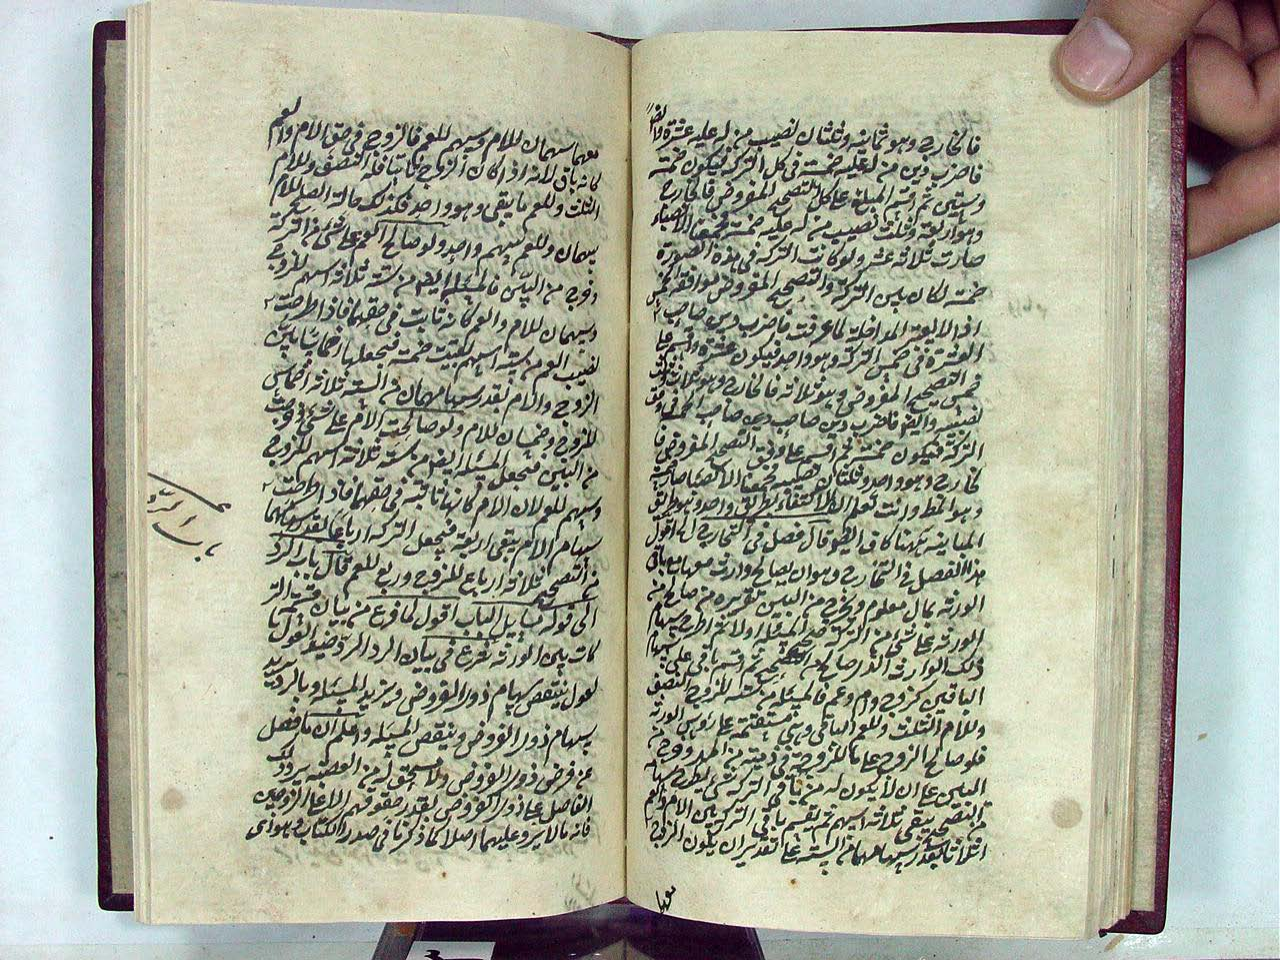 فالخارج وهو ثمانية وثلثان نصيب من له عليه عشرة وايضا
فاضرب دين من له عليه خمسة في كل التركة ليكون خمسة
وستين ثم اقسم المبلغ على كل التصحيح المفروض فالخارج
وهو اربعة وثلث نصيب من له عليه خمسة فمجموع الانصباء
صارت ثلاثة عشر ولو كانت التركة في هذه الصورة
خمسة لكان بين التركة والتصحيح المفروض موافقة بالخمس
اذ لا يعتبر المداخلة لما عرفت فاضرب دين صاحب
العشرة في خمس التركة وهو واحد فيكون عشرة واقسم على
خمس التصحيح المفروض وهو ثلاثة فالخارج وهو ثلاثة وثلث
نصيبه وايضا فاضرب دين صاحب الخمسة في وفق
التركة فيكون خمسة ثم اقسم على وفق التصحيح المفروض فا
لخارج وهو واحد وثلثان نصيبه فمجموع الانصباء صارت خمسة
وهو المط وانت تعلم ان الاكتفاء بطريق واحد وهو طريق
المباينة ههنا كاف ايضا قال فصل في التخارج الخ اقول
هذا الفصل في التخارج وهو ان يصالح وارث معها باقي
الورثة بمال معلوم ويخرج من البين تقريره من صالح من
الورثة على شيء من التركة صحح المسئلة اولا ثم اطرح سهام
ذلك الوارث الذي صالح من التصحيح ثم اقسم باقي على سهام
الباقين كزوج وام وعم فالمسئلة من ستة للزوج النصف
وللام الثلث وللعم الباقي وهي مستقيمة على رؤس الورثة
فلو صالح الزوج على ما للزوجة في ذمته من المهر وخرج
البين على ان لا يكون له من باقي التركة شيء يطرح سهامه
من التصحيح يبقى ثلاثة اسهم ثم يقسم باقي التركة بين الام والعم
اثلاثا بقدر سهامهما من الستة على تقدير ان يكون الزوج
معهما
معهما سهمان للام وسهم للعم فالزوج في حق الام والعم
كانه باق لانه اذا كان الزوج ثابتا فله النصف وللام
الثلث وللعم ما يبقى وهو واحد فكذلك حالة الصلح للام
سهمان وللعم سهم واحد ولو صالح العم على شيء من التركة
وخرج من البين فالمسئلة ايضا من ستة ثلاثة اسهم للزوج
وسهمان للام والعم كانه ثابت في حقهما فاذا طرحت
نصيب العم من ستة اسهم بقيت خمسة فتجعلها اخماسا بين
الزوج والام بقدر سهامهما من الستة ثلاثة اخماس
للزوج وخمسان للام ولو صالحت الام على شيء وخرجت
من البين فتجعل المسئلة ايضا من ستة ثلاثة اسهم للزوج
وسهم للعم لان الام كانها ثابتة في حقهما فاذا طرحت
سهام الام يبقى اربعة فتجعل التركة ارباعا بقدر سهامهما
من التصحيح ثلاثة ارباع للزوج وربع للعم قال باب الرد
الى قوله مسائل الباب اقول لما فرغ من بيان قسمة التر
كات بين الورثة شرع في بيان الرد الرد ضد العول اذ با
لعول ينتقص سهام ذوي الفروض ويزيد المسئلة وبالرد يزيد
سهام ذوي الفروض وينتقص المسئلة واعلم ان ما فضل
عن فرض ذوي الفروض ولا مستحق له من العصبة يرد ذلك
الفاضل على ذوي الفروض بقدر حقوقهم الا على الزوجين
فانه ما لا يرد عليهما اصلا كما ذكرنا في صدر الكتاب وهو رأي
باب الرد